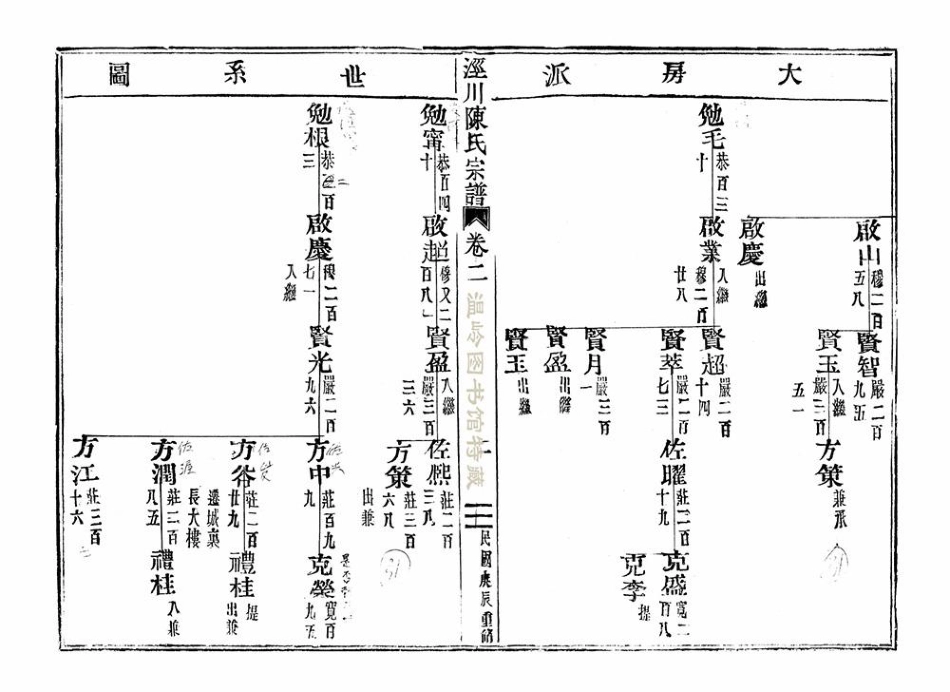 大房派
啟山
穆二百
五八
賢智
嚴二百
九五
賢玉
入繼
嚴三百
五一
方策
兼祧
啟慶
出繼
勉毛
恭百三
十
啟業
入繼
穆二百
廿八
賢超
嚴二百
十四
賢萃
嚴二百
七三
佐曜
莊二百
十九
克盛
寬二
百八
克李
提
賢月
嚴三百
一
賢盈
出繼
賢玉
出繼
涇川陳氏宗譜
卷二
温岭图书馆特藏
民國庚辰重修
世系圖
勉甯
恭百四
十
啟超
穆又二
百八
賢盈
入繼
嚴三百
三六
佐熙
莊二百
三八
方策
莊三百
六八
出兼
勉根
恭百
三
啟慶
穆二百
七一
入繼
賢光
嚴二百
九六
方中
莊百九
九
克榮
寬百
九五
方谷
莊二百
廿九
遷城裏
長大樓
禮桂
提
出兼
方潤
莊二百
八五
禮桂
入兼
方江
莊三百
十六